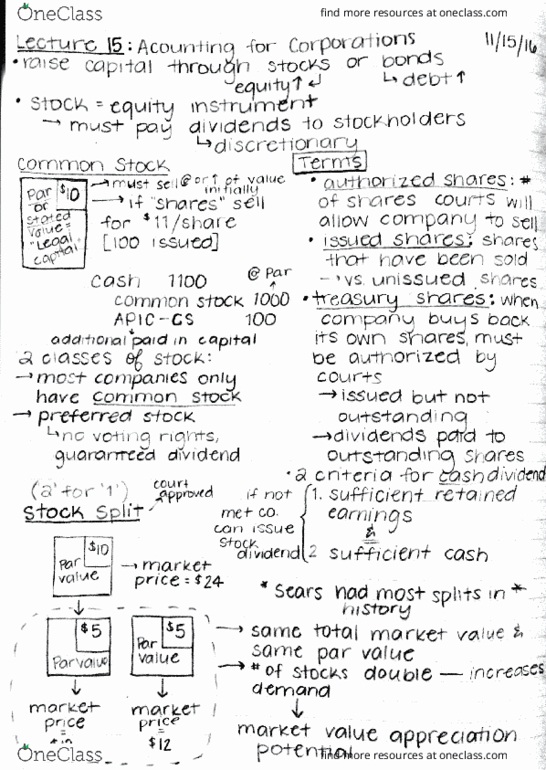 OneClass
find more resources at oneclass.com
Lecture 15: Acounting for Corporations
11/15/16
• raise capital through stocks or bonds
equity↑ ↲
↳ debt↑
• stock = equity instrument
→ must pay dividends to stockholders
↳ discretionary
Common Stock
Par or stated value = "Legal capital"
$10
→ must sell @ or ↑ pt value initially
→ if "shares" sell
for $11/share
[100 issued]
@ par
cash 1100
common stock 1000
APIC-CS 100
additional paid in capital
2 classes of stock:
→ most companies only
have common stock
→ preferred stock
↳ no voting rights,
guaranteed dividend
Terms
• authorized shares: #
of shares courts will
allow company to sell
• issued shares: shares
that have been sold
→ vs. unissued shares
• treasury shares: when
company buys back
its own shares, must
be authorized by
courts
→ issued but not
outstanding
→ dividends paid to
outstanding shares
• 2 criteria for cash dividend
1. sufficient retained
earnings
&
2 sufficient cash
if not
met co.
can issue
stock
dividend
(2 for 1)
court approved
Stock Split
$10
Par value
→ market
price = $24
* Sears had most splits in *
history
$5
Par value
$5
Par value
→ same total market value &
same par value
→ # of stocks double — increases
demand
↓
market value appreciation
potential
market
price
=
market
price
=
$12
OneClass
find more resources at oneclass.com